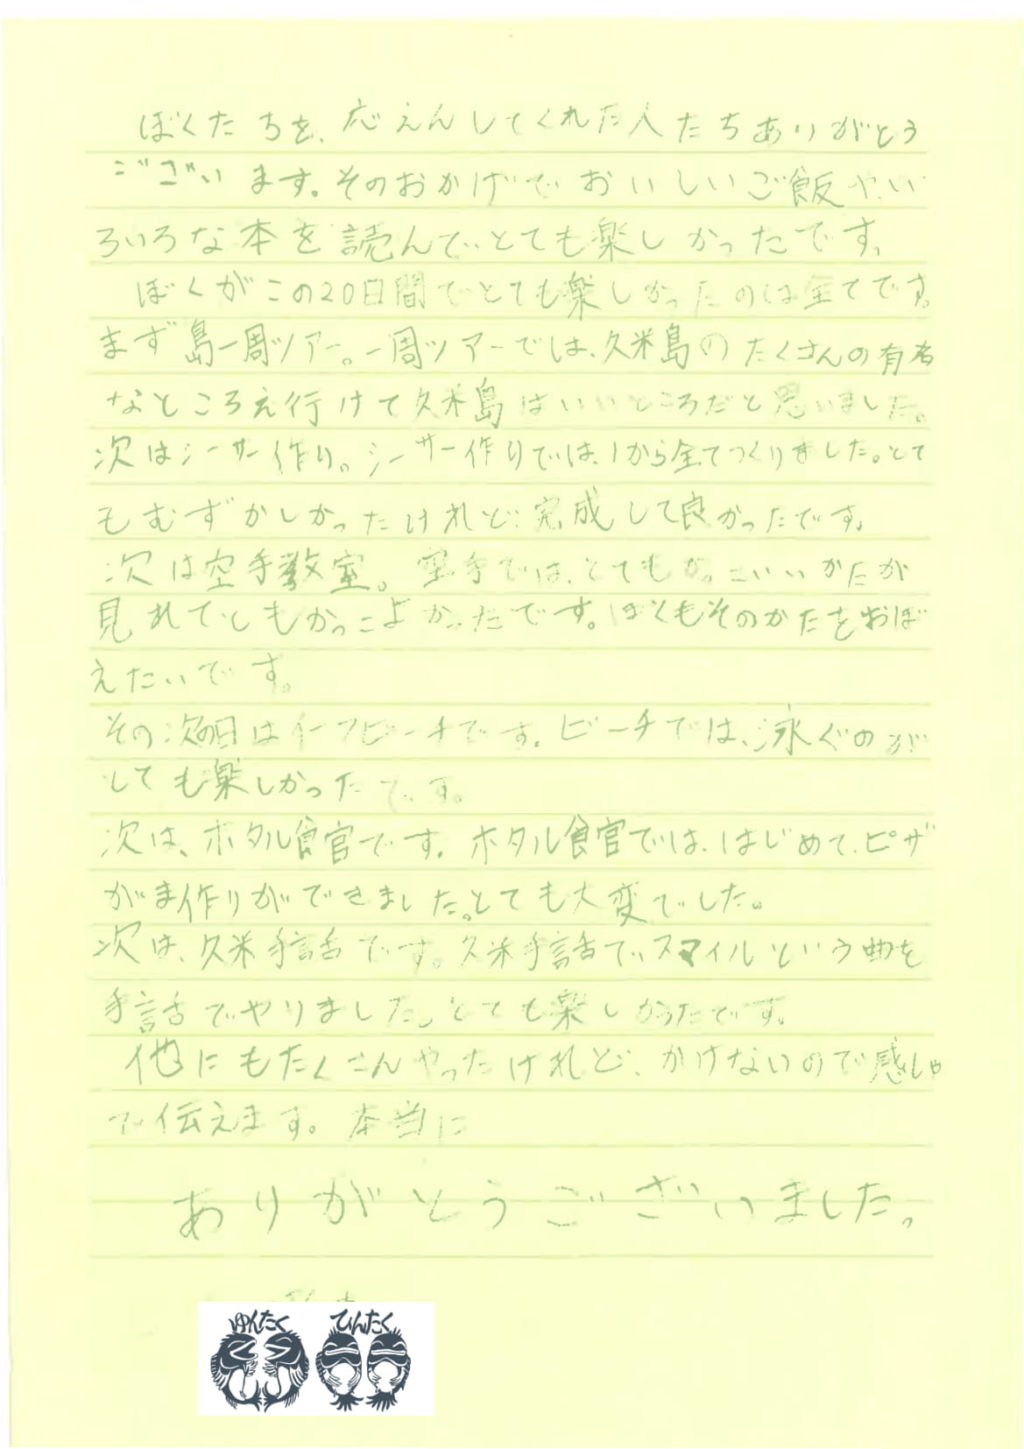 ぼくたちを、応えんしてくれた人たちありがとう
ございます。そのおかげでおいしいご飯やい
ろいろな本を読んで、とても楽しかったです。
ぼくがこの20日間でとても楽しかったのは全てです。
まず島一周ツアー。一周ツアーでは、久米島のたくさんの有名
なところえ行けて久米島はいいところだと思いました。
次はシーサー作り。シーサー作りでは、1から全てつくりました。とて
もむずかしかったけれど、完成して良かったです。
次は空手教室。空手では、とてもかっこいいかたが
見れてともかっこよかったです。ぼくもそのかたをおぼ
えたいです。
その次の日はイーフビーチです。ビーチでは、泳ぐのが
とても楽しかったです。
次は、ホタル食官です。ホタル食官では、はじめて、ピザ
がま作りができました。とても大変でした。
次は、久米手話です。久米手話で、スマイルという曲を
手話でやりました。とても楽しかったです。
他にもたくさんやったけれど、かけないので感しゃ
で伝えます。本当に
ありがとうございました。
ゆんたく ひんたく